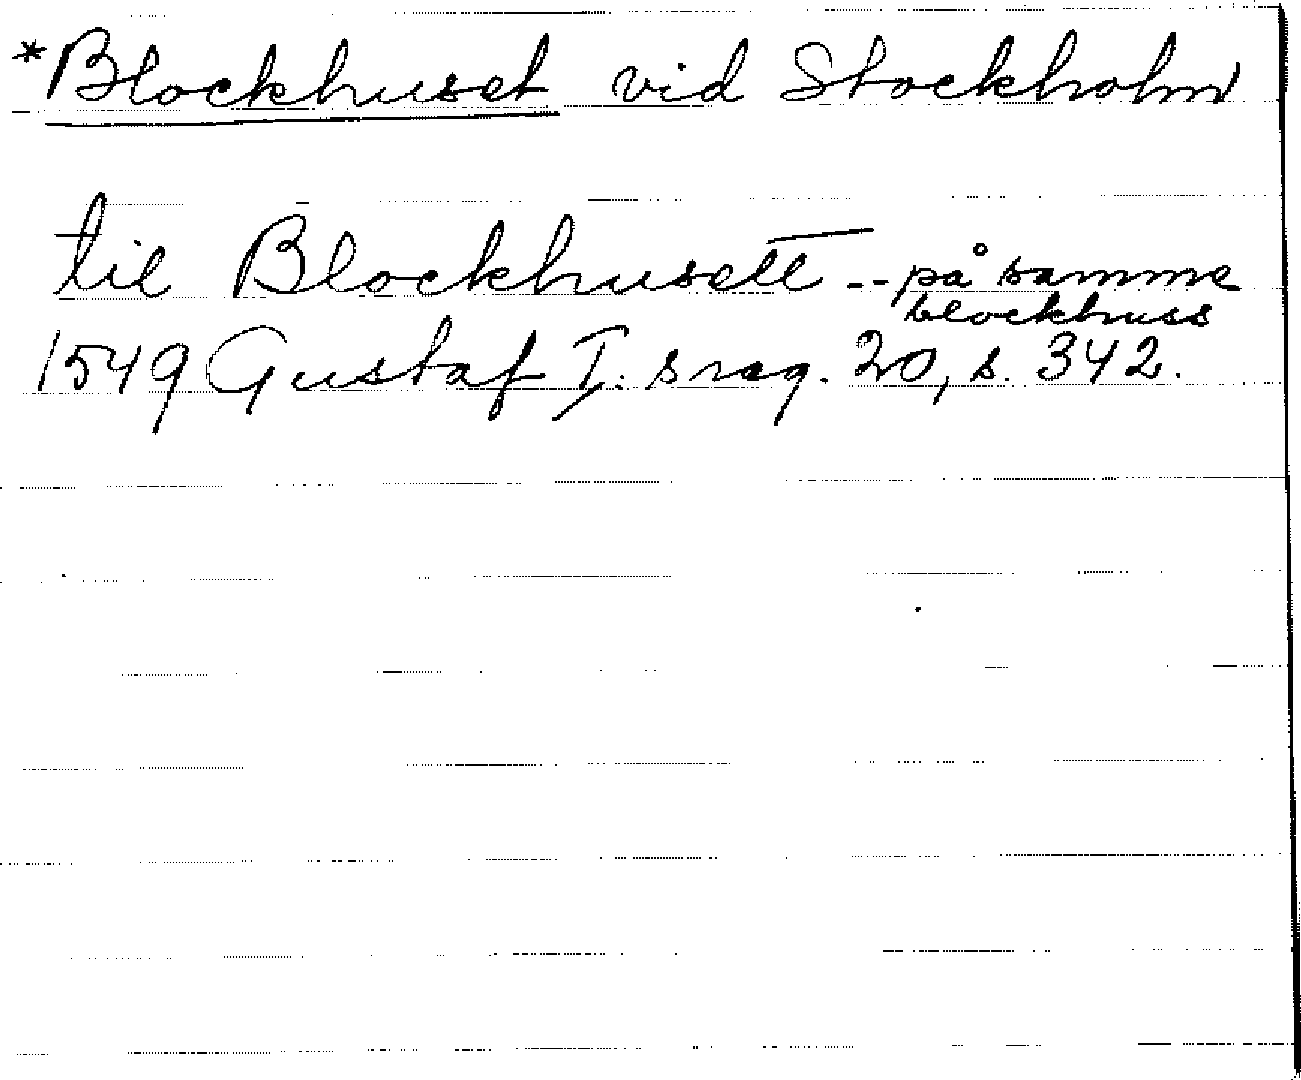 *Blockhuset vid Stockholm
til Blockhusett -- på samme
blockhuss
1549 Gustaf I: s reg. 20, s. 342.